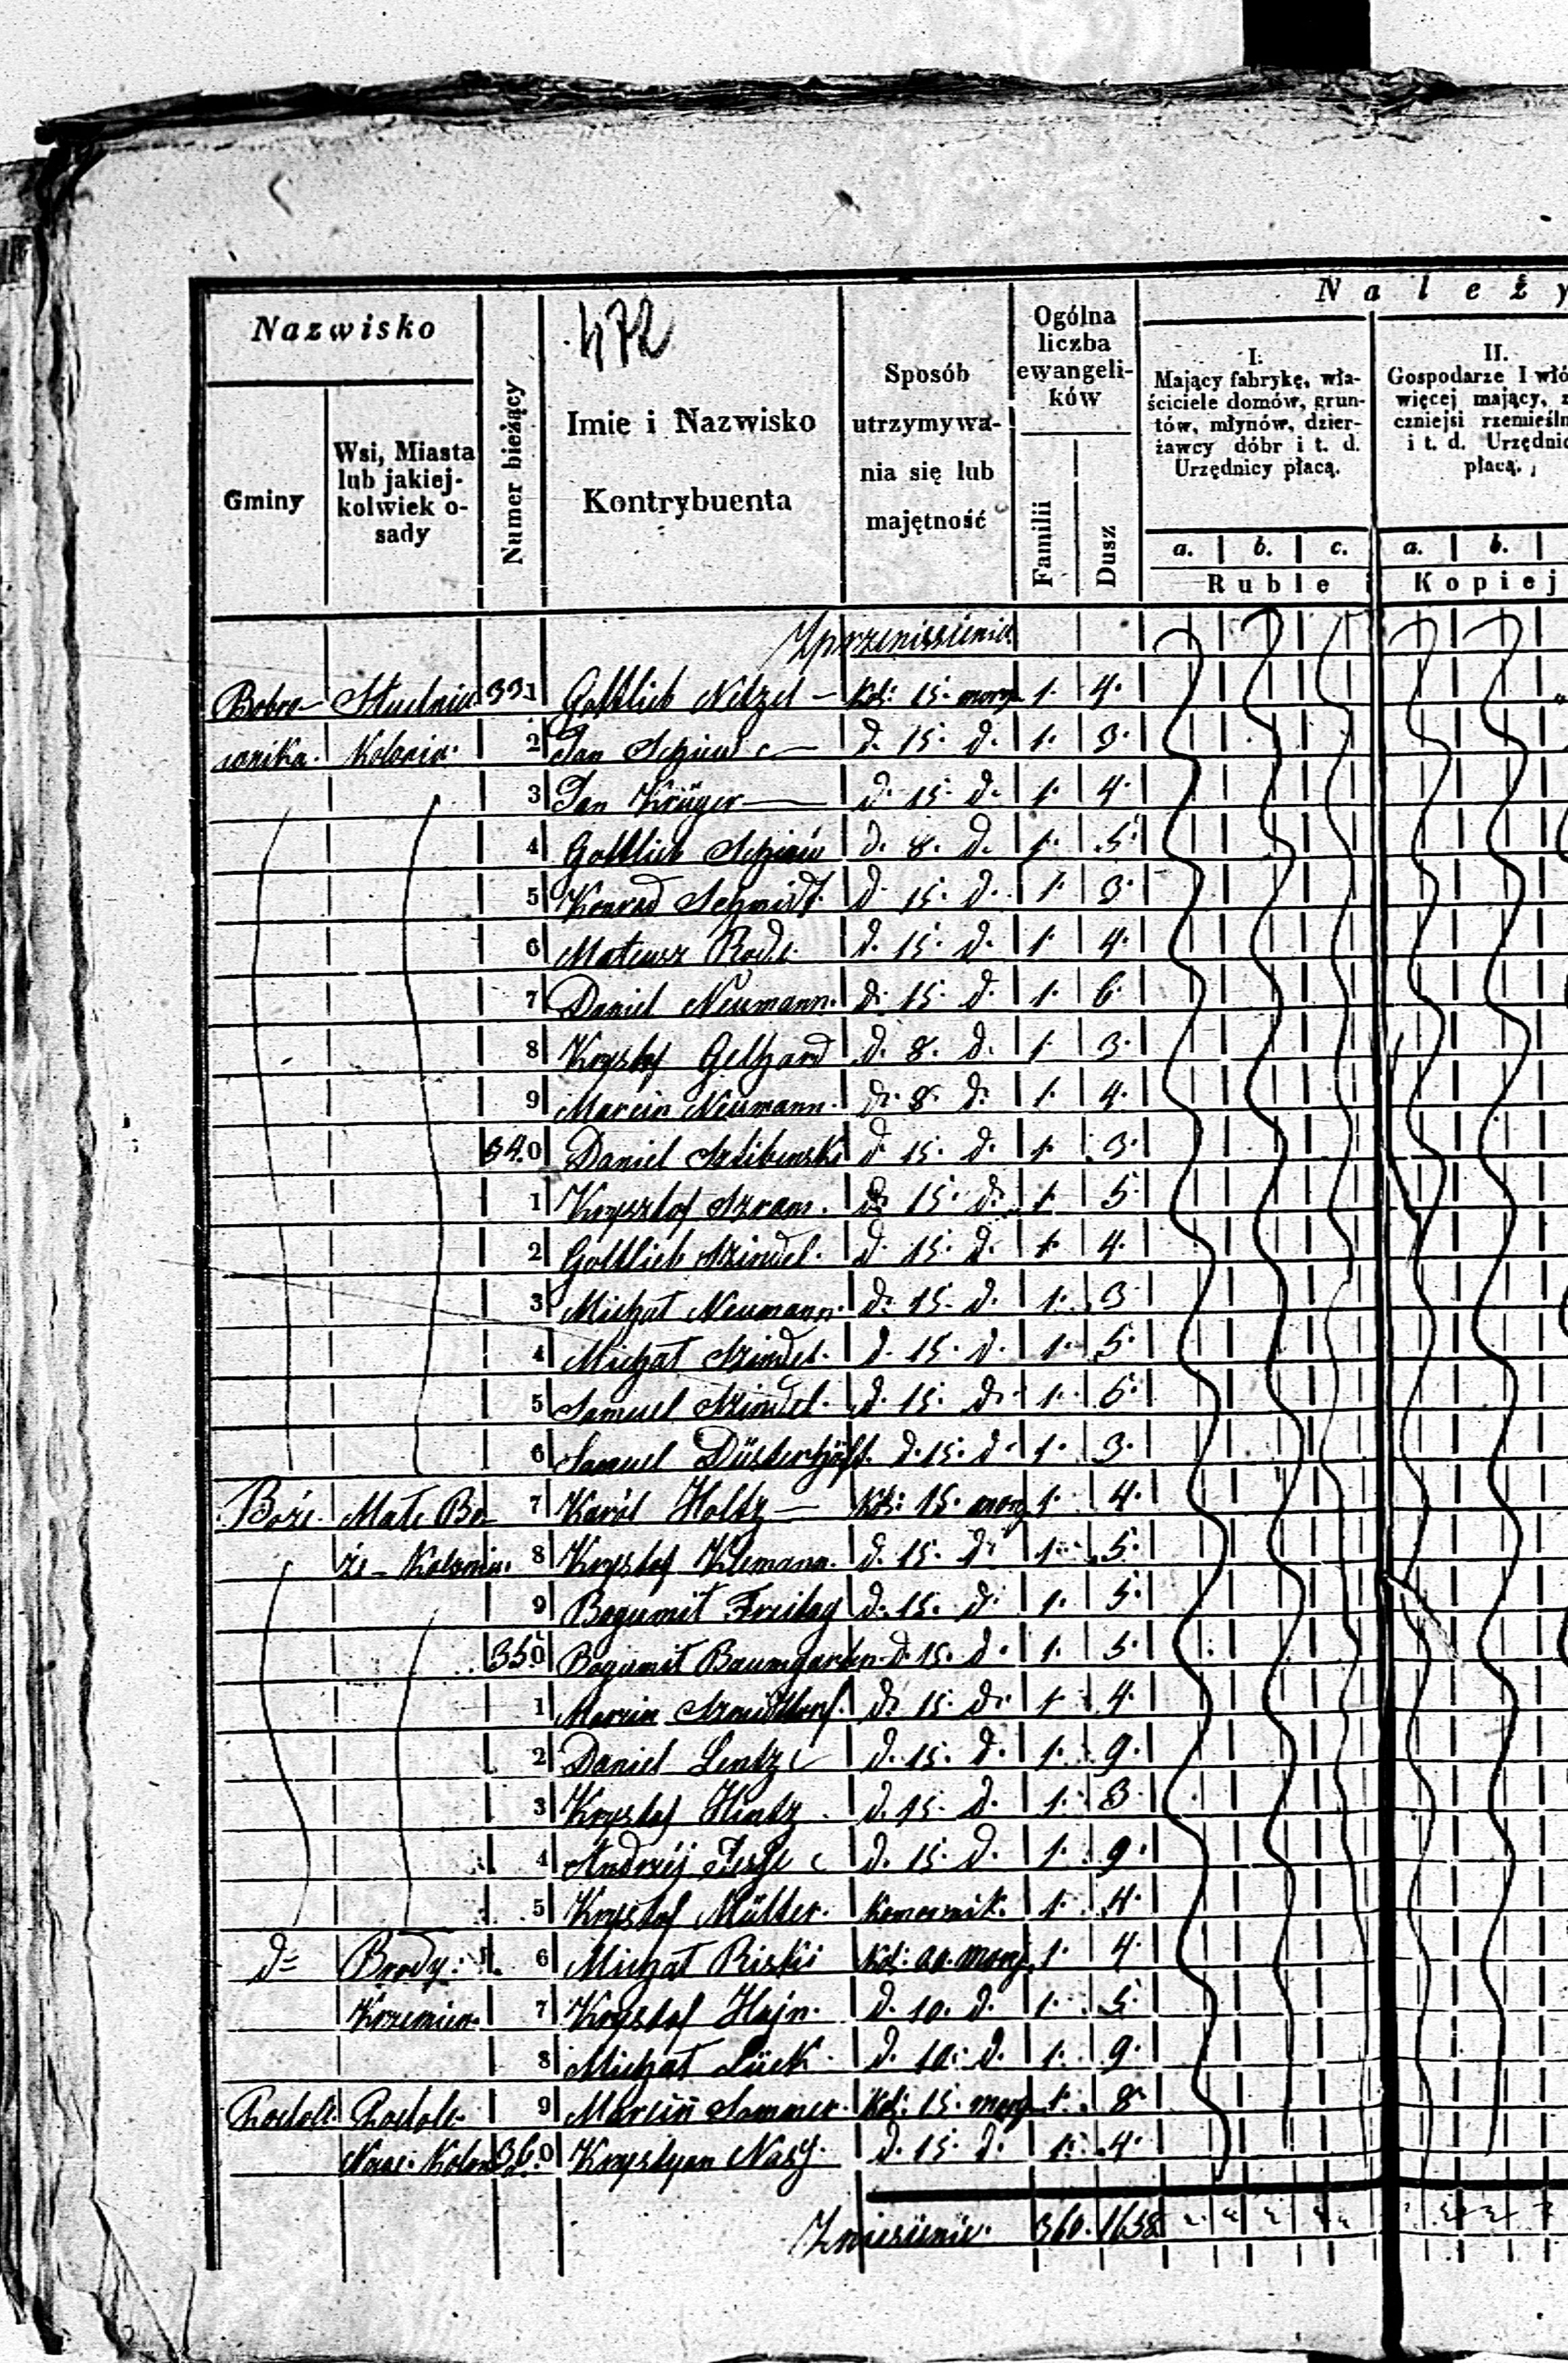 472
Należy
Nazwisko
Gminy
Wsi, Miasta lub jakiej-kolwiek o-sady
Numer bieżący
Imie i Nazwisko Kontrybuenta
Sposób utrzymywa-nia się lub majętność
Ogólna liczba ewangeli-ków
Familii
Dusz
I. Mający fabrykę, wła-ściciele domów, grun-tów, młynów, dzier-żawcy dóbr i t. d. Urzędnicy płacą.
II. Gospodarze I włó więcej mający, z czniejsi rzemieśln i t. d. Urzędnic płacą.
a. b. c. a. b.
Ruble Kopiej
Z przeniesienia
Bobro- 331 Gottlieb Netzel Kol: 15. morg 1. 4.
wnika. Kolonia. 2 Jan d. 15. d. 1. 3.
3 Jan Krüger d. 15. d. 1. 4.
4 Gottlieb d. 8. d. 1. 5.
5 Konrad Schmidt. d. 15. d. 1. 3.
6 Mateusz d. 15. d. 1. 4.
7 Daniel Neumann. d. 15. d. 1. 6.
8 Krystof Gelhard d. 8. d. 1. 3.
9 Marcin Neumann. d. 8. d. 1. 4.
340 Daniel d. 15. d. 1. 3.
1 Krysztof Szram. d. 15. d. 1. 5.
2 Gottlieb Szindel. d. 15. d. 1. 4.
3 Michał Neumann. d. 15. d. 1. 3.
4 Michał Szindel. d. 15. d. 1. 5.
5 Samuel Szindel. d. 15. d. 1. 5.
6 Samuel Düsterhöft. d. 15. d. 1. 3.
Boże Małe Bo- 7 Karól Holtz Kol: 15. morg 1. 4.
że - Kolonia. 8 Krystof Klemann. d. 15. d. 1. 5.
9 Bogumił Freitag d. 15. d. 1. 5.
350 Bogumił Baumgarten d. 15. d. 1. 5.
1 Marcin d. 15. d. 1. 4.
2 Daniel Lentz d. 15. d. 1. 9.
3 Krystof Hintz d. 15. d. 1. 3.
4 Andrzéj d. 15. d. 1. 9.
5 Krystof Müller. Komornik. 1. 4.
d= Brody. 6 Michał Riski Kol: morg. 1. 4.
Krzemien. 7 Krystof Hajn. d. 10. d. 1. 5.
8 Michał Lück. d. 10. d. 1. 9.
9 Marcin Sommer. Kol: 15. morg 1. 8
360 Krystyan d. 15. d. 1. 4.
Zniesienie. 360. 1658